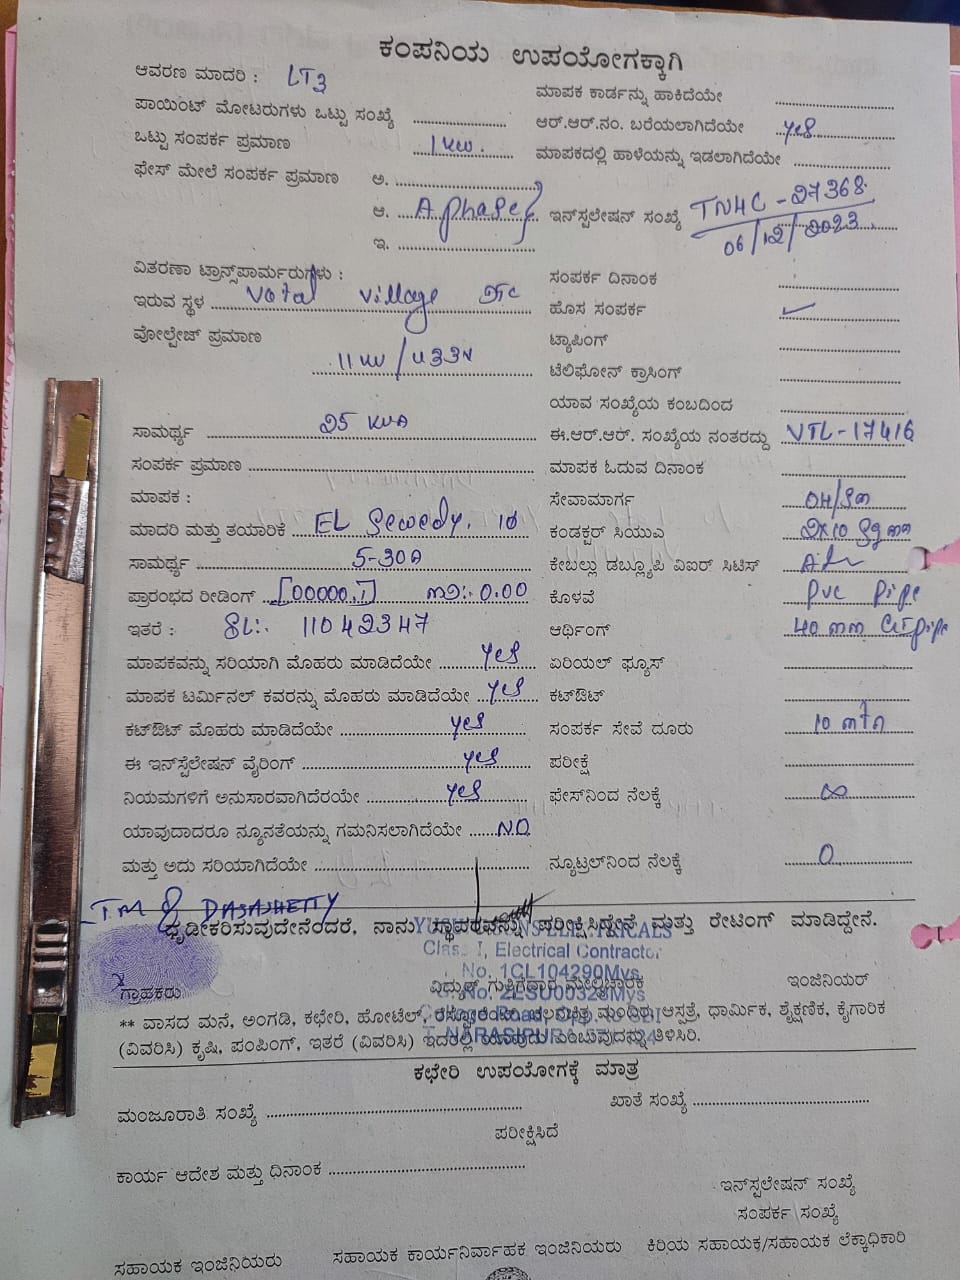 ಕಂಪನಿಯ ಉಪಯೋಗಕ್ಕಾಗಿ
ಆವರಣ ಮಾದರಿ : LT3
ಮಾಪಕ ಕಾರ್ಡನ್ನು ಹಾಕಿದೆಯೇ
ಪಾಯಿಂಟ್ ಮೋಟರುಗಳು ಒಟ್ಟು ಸಂಖ್ಯೆ
ಆರ್.ಆರ್.ನಂ. ಬರೆಯಲಾಗಿದೆಯೇ yes
ಒಟ್ಟು ಸಂಪರ್ಕ ಪ್ರಮಾಣ 1 KW.
ಮಾಪಕದಲ್ಲಿ ಹಾಳೆಯನ್ನು ಇಡಲಾಗಿದೆಯೇ
ಫೇಸ್ ಮೇಲೆ ಸಂಪರ್ಕ ಪ್ರಮಾಣ ಅ.
ಆ. A phase
ಇ.
ಇನ್‌ಸ್ಪಲೇಷನ್ ಸಂಖ್ಯೆ TN4C - 27368
06/12/2023
ವಿತರಣಾ ಟ್ರಾನ್ಸ್‌ಪಾರ್ಮರುಗಳು :
ಸಂಪರ್ಕ ದಿನಾಂಕ
ಇರುವ ಸ್ಥಳ Votal Village
ಹೊಸ ಸಂಪರ್ಕ ✓
ವೋಲ್ಟೇಜ್ ಪ್ರಮಾಣ 11 KV / 433V
ಟ್ಯಾಪಿಂಗ್
ಟೆಲಿಫೋನ್ ಕ್ರಾಸಿಂಗ್
ಯಾವ ಸಂಖ್ಯೆಯ ಕಂಬದಿಂದ
ಸಾಮರ್ಥ್ಯ 25 KVA
ಈ.ಆರ್.ಆರ್. ಸಂಖ್ಯೆಯ ನಂತರದ್ದು VTL-17416
ಸಂಪರ್ಕ ಪ್ರಮಾಣ
ಮಾಪಕ ಓದುವ ದಿನಾಂಕ
ಮಾಪಕ :
ಸೇವಾಮಾರ್ಗ OH/
ಮಾದರಿ ಮತ್ತು ತಯಾರಿಕೆ EL Sewedy. 1ϕ
ಕಂಡಕ್ಟರ್ ಸಿಯುಎ 2x10
ಸಾಮರ್ಥ್ಯ 5-30A
ಕೇಬಲ್ಲು ಡಬ್ಲ್ಯೂಪಿ ವಿಐರ್ ಸಿಟಿಸ್
ಪ್ರಾರಂಭದ ರೀಡಿಂಗ್ [00000.1] 0.00
ಕೊಳವೆ PVC Pipe
ಇತರೆ : SL:. 11042347
ಆರ್ಥಿಂಗ್ 40 mm GI pipe
ಮಾಪಕವನ್ನು ಸರಿಯಾಗಿ ಮೊಹರು ಮಾಡಿದೆಯೇ yes
ಏರಿಯಲ್ ಫ್ಯೂಸ್
ಮಾಪಕ ಟರ್ಮಿನಲ್ ಕವರನ್ನು ಮೊಹರು ಮಾಡಿದೆಯೇ yes
ಕಟ್‌ಔಟ್
ಕಟ್‌ಔಟ್ ಮೊಹರು ಮಾಡಿದೆಯೇ yes
ಸಂಪರ್ಕ ಸೇವೆ ದೂರು 10 mtr
ಈ ಇನ್‌ಸ್ಟೆಲೇಷನ್ ವೈರಿಂಗ್ yes
ಪರೀಕ್ಷೆ
ನಿಯಮಗಳಿಗೆ ಅನುಸಾರವಾಗಿದೆರಯೇ yes
ಫೇಸ್‌ನಿಂದ ನೆಲಕ್ಕೆ ∞
ಯಾವುದಾದರೂ ನ್ಯೂನತೆಯನ್ನು ಗಮನಿಸಲಾಗಿದೆಯೇ NO
ಮತ್ತು ಅದು ಸರಿಯಾಗಿದೆಯೇ
ನ್ಯೂಟ್ರಲ್‌ನಿಂದ ನೆಲಕ್ಕೆ 0
LTM & DASASHETTY
ದೃಢೀಕರಿಸುವುದೇನೆಂದರೆ, ನಾನು ಸ್ಥಾವರವನ್ನು ಪರೀಕ್ಷಿಸಿದ್ದೇನೆ ಮತ್ತು ರೇಟಿಂಗ್ ಮಾಡಿದ್ದೇನೆ.
Class I, Electrical Contractor
No. 1CL104290Mys
ಗ್ರಾಹಕರು
ವಿದ್ಯುತ್ ಗುತ್ತಿಗೆದಾರ ಮೇಲ್ವಿಚಾರಕ
ಇಂಜಿನಿಯರ್
** ವಾಸದ ಮನೆ, ಅಂಗಡಿ, ಕಛೇರಿ, ಹೋಟೆಲ್, ರೆಸ್ಟೋರೆಂಟು, ಚಲನಚಿತ್ರ ಮಂದಿರ, ಆಸ್ಪತ್ರೆ, ಧಾರ್ಮಿಕ, ಶೈಕ್ಷಣಿಕ, ಕೈಗಾರಿಕ
(ವಿವರಿಸಿ) ಕೃಷಿ, ಪಂಪಿಂಗ್, ಇತರೆ (ವಿವರಿಸಿ) ಇದರಲ್ಲಿ ಯಾವುದು ಎಂಬುವುದನ್ನು ತಿಳಿಸಿರಿ.
ಕಛೇರಿ ಉಪಯೋಗಕ್ಕೆ ಮಾತ್ರ
ಮಂಜೂರಾತಿ ಸಂಖ್ಯೆ
ಖಾತೆ ಸಂಖ್ಯೆ
ಪರೀಕ್ಷಿಸಿದೆ
ಕಾರ್ಯ ಆದೇಶ ಮತ್ತು ದಿನಾಂಕ
ಇನ್‌ಸ್ಪಲೇಷನ್ ಸಂಖ್ಯೆ
ಸಂಪರ್ಕ ಸಂಖ್ಯೆ
ಸಹಾಯಕ ಇಂಜಿನಿಯರು
ಸಹಾಯಕ ಕಾರ್ಯನಿರ್ವಾಹಕ ಇಂಜಿನಿಯರು
ಕಿರಿಯ ಸಹಾಯಕ/ಸಹಾಯಕ ಲೆಕ್ಕಾಧಿಕಾರಿ